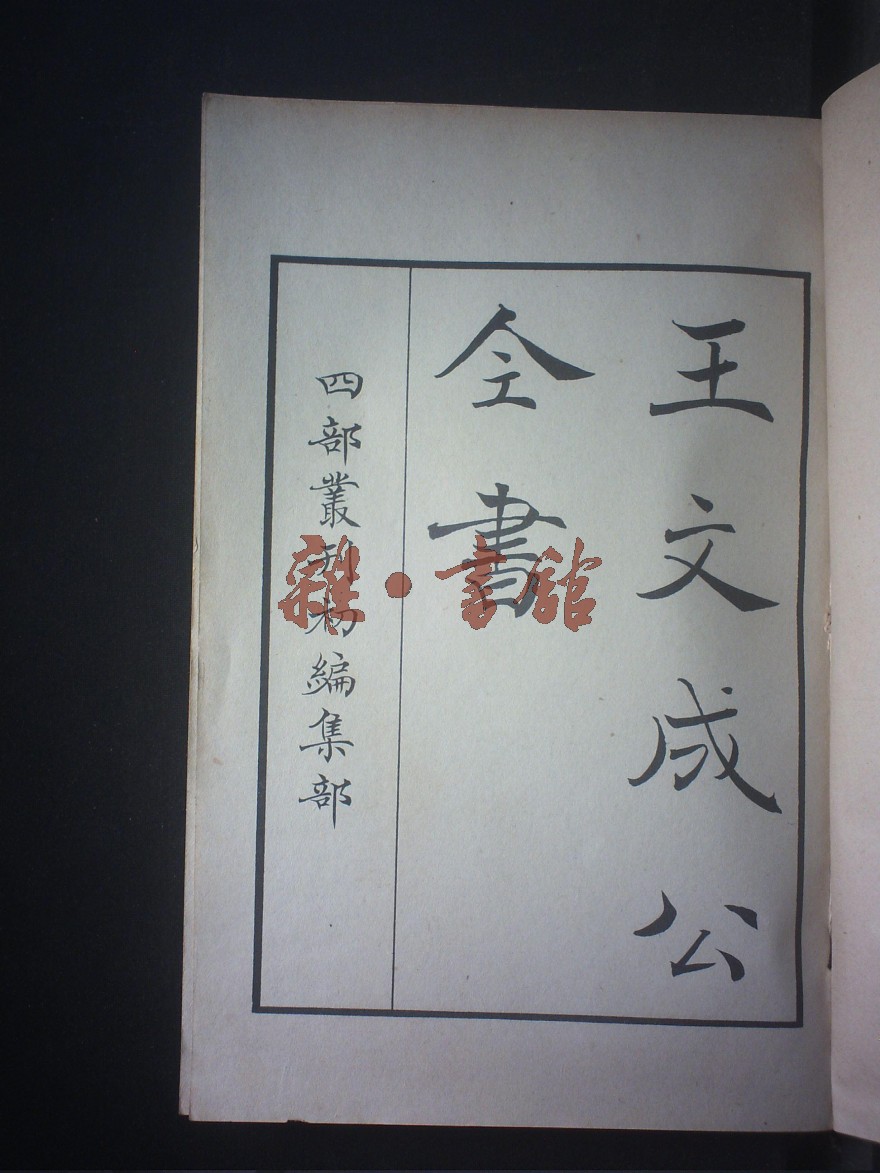 王文成公
全書
四部叢刊初編集部
雜·書館